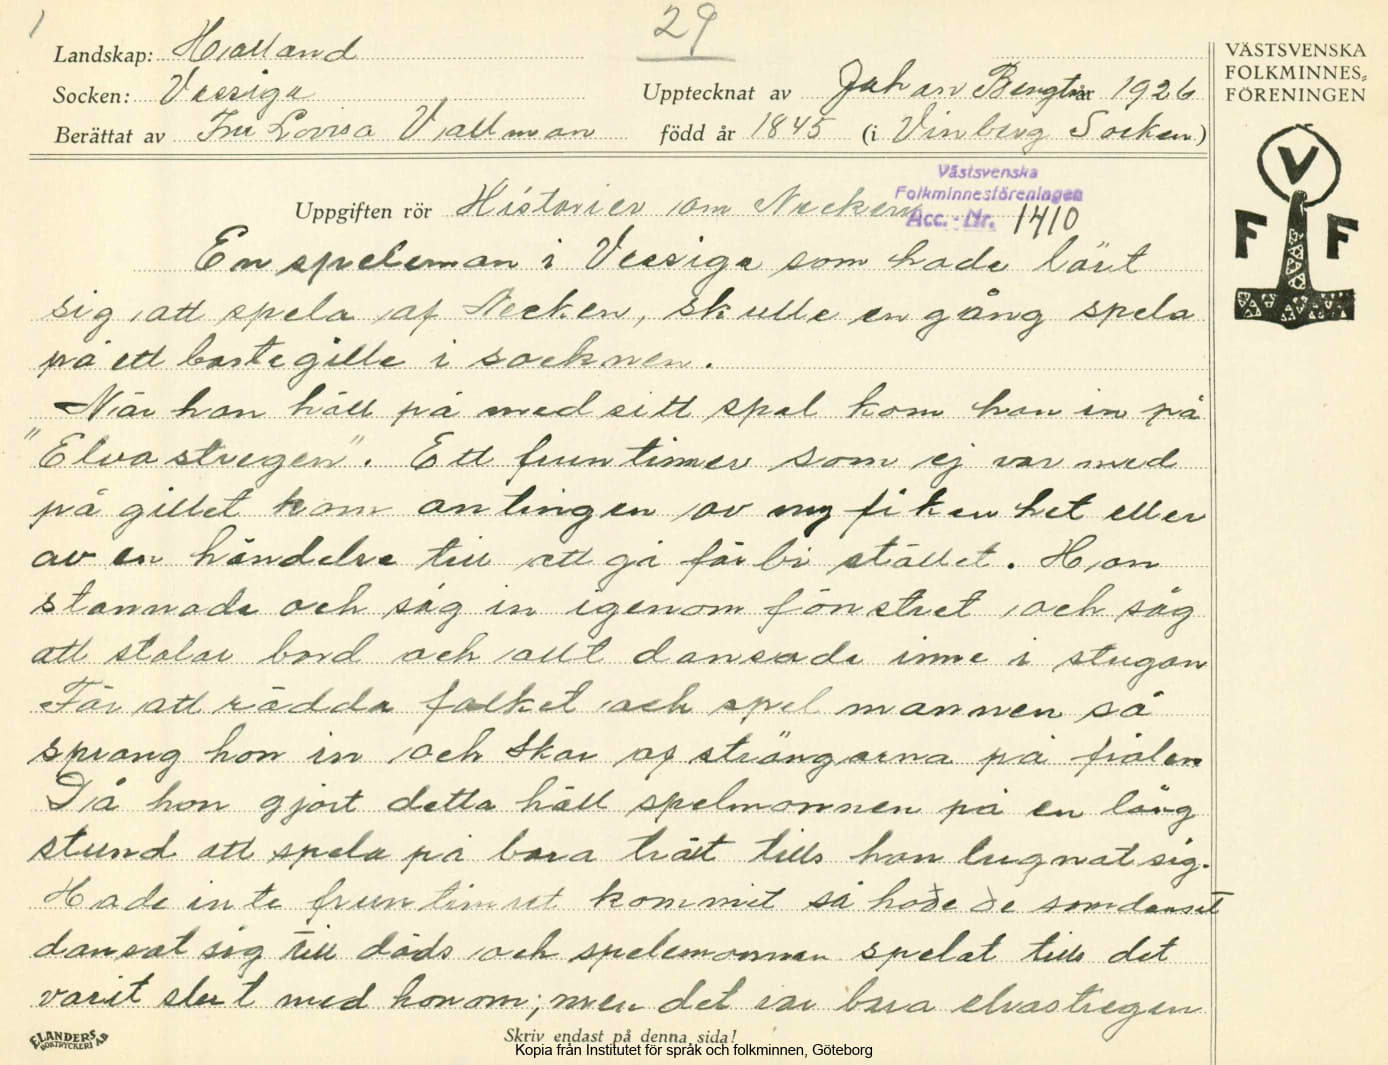 29
Landskap: Halland
Socken: Vessiga
Upptecknat av Johan Bengtsson 1926
Berättat av Fru Lovisa Vallman född år 1845 (i Vinberg Socken)
VÄSTSVENSKA
FOLKMINNES-
FÖRENINGEN
V
F F
Västsvenska
Folkminnesföreningen
Acc. - Nr. 1410
Uppgiften rör Historier om Necken
En speleman i Vessiga som hade lärt
sig att spela af Necken, skulle en gång spela
på ett bastegille i socknen.
När han håll på med sitt spel kom han in på
"Elvastregen". Ett fruntimer som ej var med
på gillet kom antingen av nyfikenhet eller
av en händelse till att gå förbi stället. Hon
stannade och såg in igenom fönstret och såg
att stolar bord och allt dansade inne i stugan
För att rädda folket och spelmannen så
sprang hon in och skar af strängarna på fiolen
Då hon gjort detta håll spelmannen på en lång
stund att spela på bara trät tills han lugnat sig.
Hade inte fruntimret kommit så hade de som danset
dansat sig till döds och spelemannen spelat tills det
varit slut med honom; men det var bara elvastregen
ELANDERS
BOKTRYCKERI AB
Skriv endast på denna sida!
Kopia från Institutet för språk och folkminnen, Göteborg